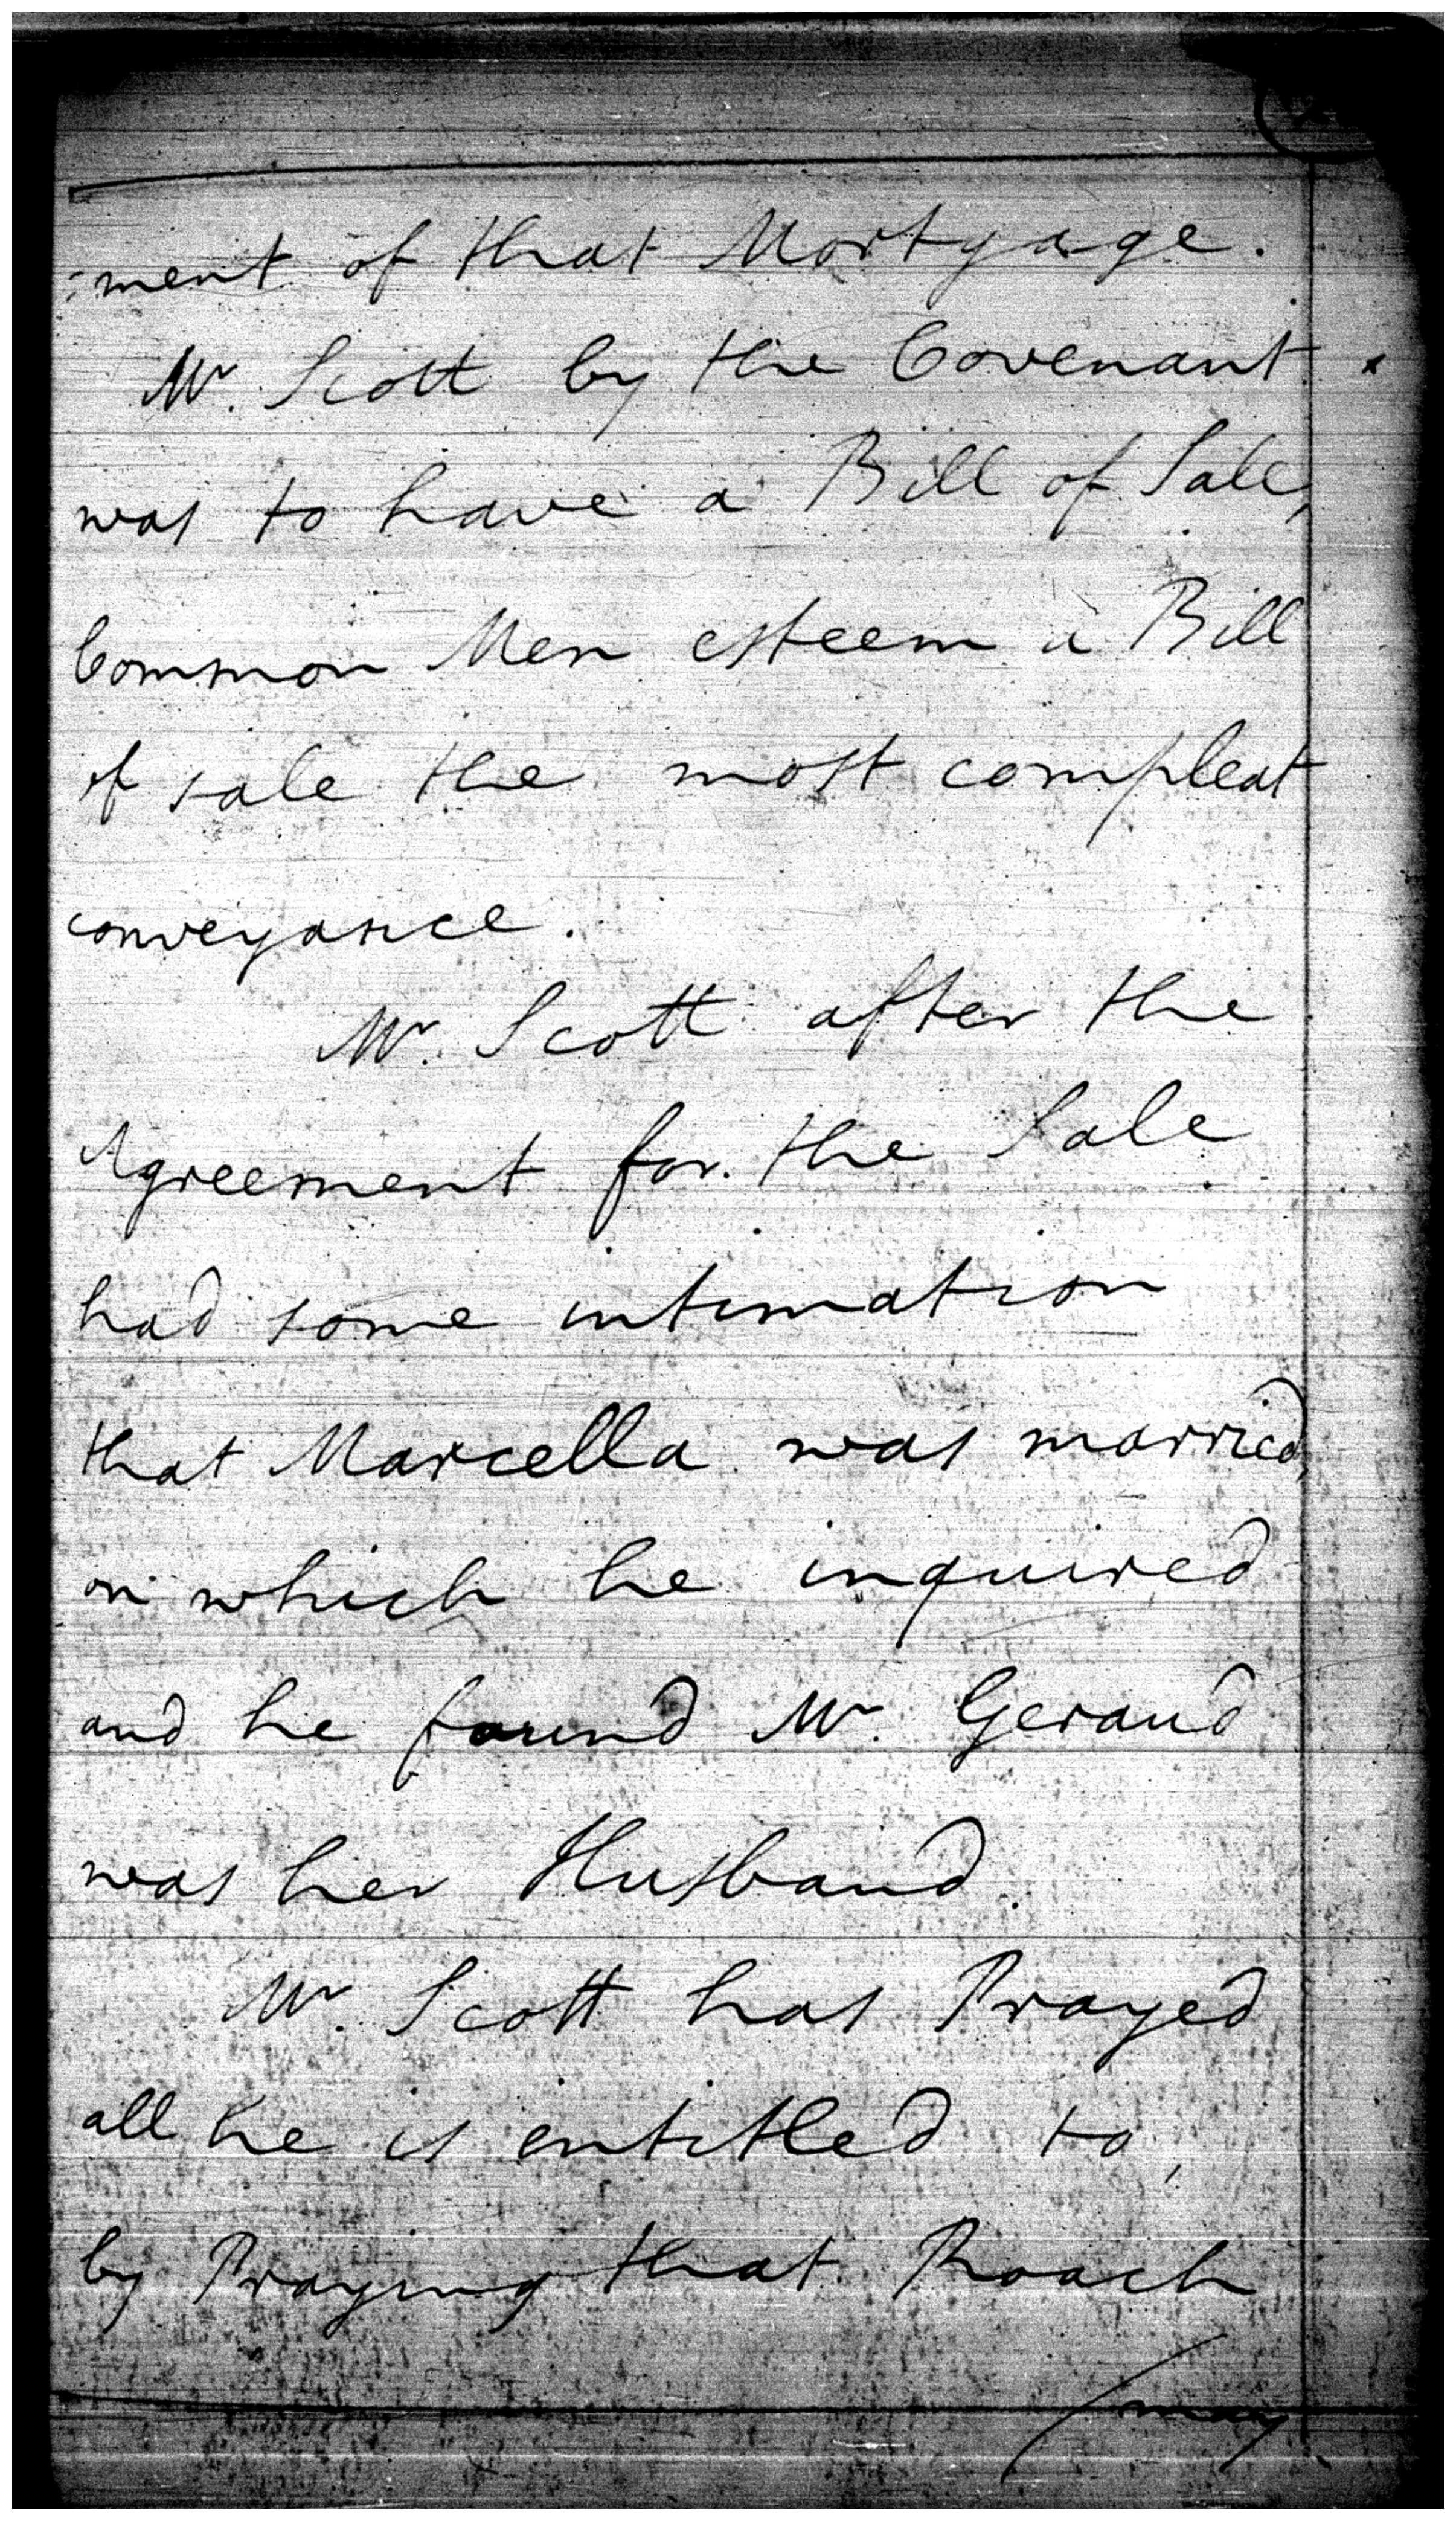 -ment of that Mortgage.
Mr. Scott by the Covenant
was to have a Bill of Sale,
Common Men esteem a Bill
of sale the most compleat
conveyance.
Mr. Scott after the
Agreement for the Sale
had some intimation
that Marcella was married,
on which he inquired
and he found Mr. Geraud
was her Husband.
Mr. Scott has Prayed
all he is entitled to,
by Praying that Roach
/may